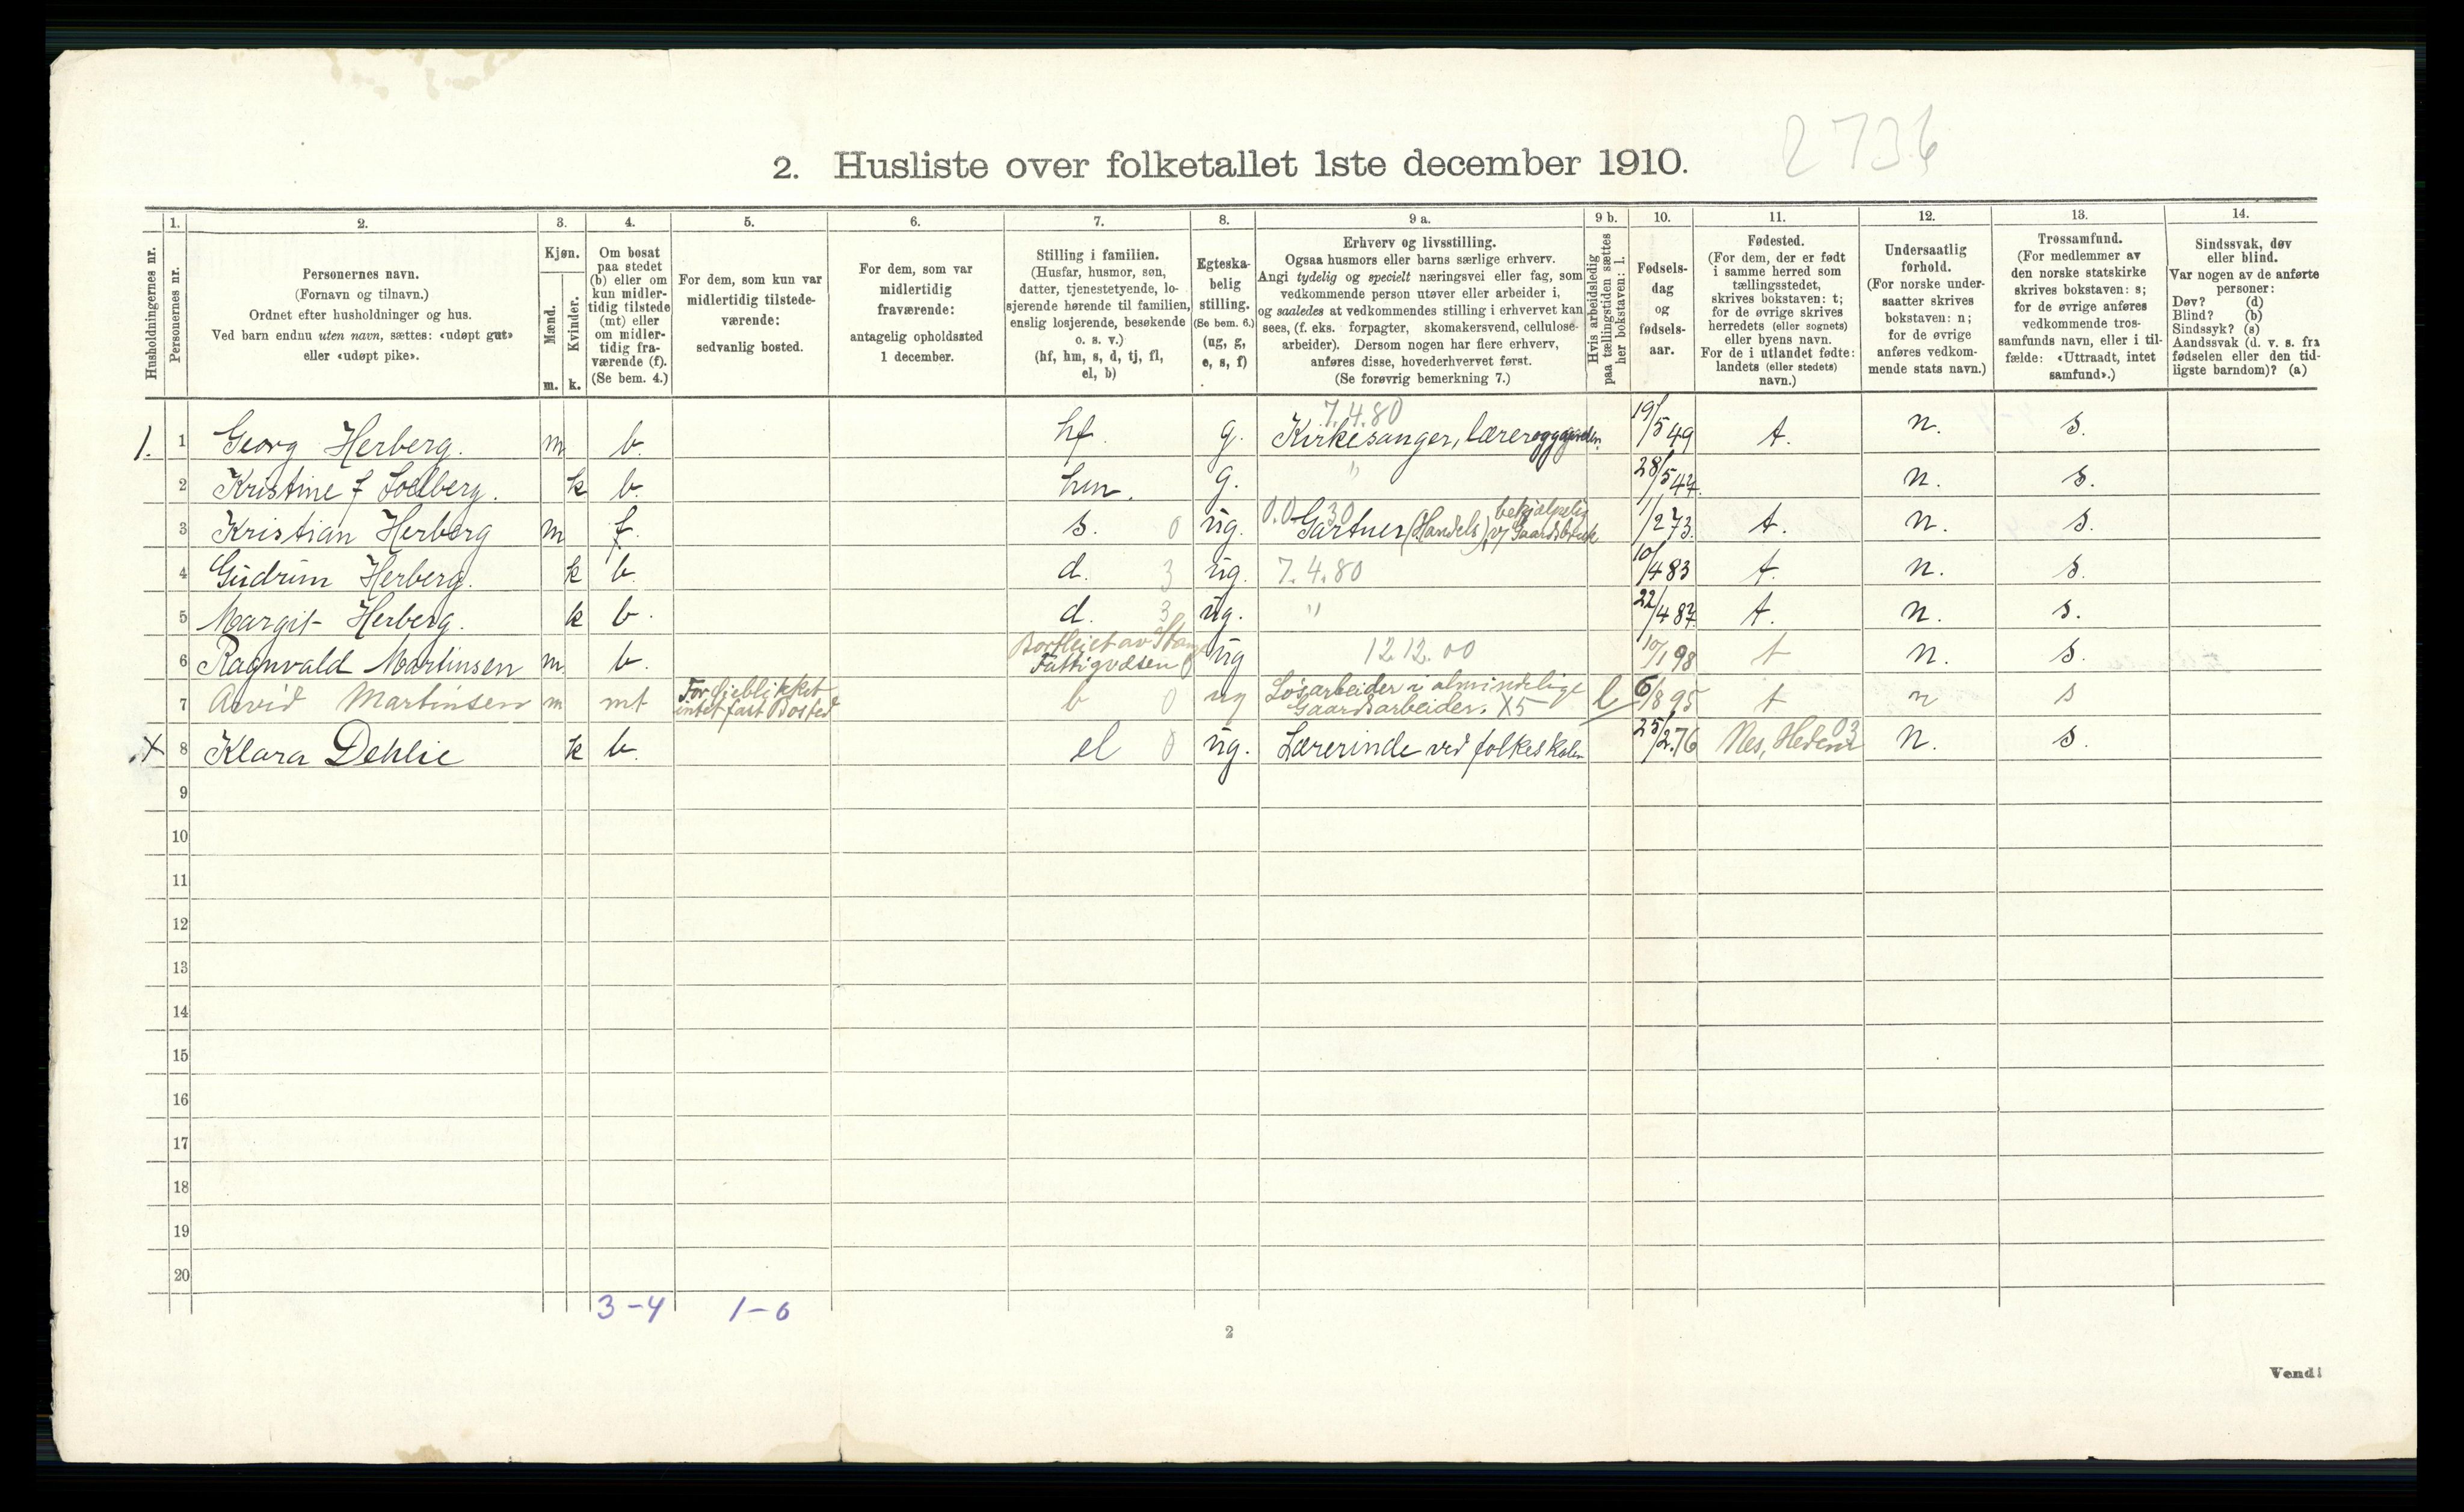 2736
2. Husliste over folketallet 1ste december 1910.
Husholdningernes nr.
1. Personernes nr.
2. Personernes navn.
(Fornavn og tilnavn.)
Ordnet efter husholdninger og hus.
Ved barn endnu uten navn, sættes: «udøpt gut»
eller «udøpt pike».
3. Kjøn.
Mænd. m.
Kvinder. k.
4. Om bosat
paa stedet
(b) eller om
kun midler-
tidig tilstede
(mt) eller
om midler-
tidig fra-
værende (f).
(Se bem. 4.)
5. For dem, som kun var
midlertidig tilstede-
værende:
sedvanlig bosted.
6. For dem, som var
midlertidig
fraværende:
antagelig opholdssted
1 december.
7. Stilling i familien.
(Husfar, husmor, søn,
datter, tjenestetyende, lo-
sjerende hørende til familien,
enslig losjerende, besøkende
o. s. v.)
(hf, hm, s, d, tj, fl,
el, b)
8. Egteska-
belig
stilling.
(Se bem. 6.)
(ug, g,
e, s, f)
9 a. Erhverv og livsstilling.
Ogsaa husmors eller barns særlige erhverv.
Angi tydelig og specielt næringsvei eller fag, som
vedkommende person utøver eller arbeider i,
og saaledes at vedkommendes stilling i erhvervet kan
sees, (f. eks. forpagter, skomakersvend, cellulose-
arbeider). Dersom nogen har flere erhverv,
anføres disse, hovederhvervet først.
(Se forøvrig bemerkning 7.)
9 b. Hvis arbeidsledig
paa tællingstiden sættes
her bokstaven: l.
10. Fødsels-
dag
og
fødsels-
aar.
11. Fødested.
(For dem, der er født
i samme herred som
tællingsstedet,
skrives bokstaven: t;
for de øvrige skrives
herredets (eller sognets)
eller byens navn.
For de i utlandet fødte:
landets (eller stedets)
navn.)
12. Undersaatlig
forhold.
(For norske under-
saatter skrives
bokstaven: n;
for de øvrige
anføres vedkom-
mende stats navn.)
13. Trossamfund.
(For medlemmer av
den norske statskirke
skrives bokstaven: s;
for de øvrige anføres
vedkommende tros-
samfunds navn, eller i til-
fælde: «Uttraadt, intet
samfund».)
14. Sindssvak, døv
eller blind.
Var nogen av de anførte
personer:
Døv? (d)
Blind? (b)
Sindssyk? (s)
Aandssvak (d. v. s. fra
fødselen eller den tid-
ligste barndom)? (a)
7.4.80
1. 1 Georg Herberg. m b. hf. g. Kirkesanger, lærer 19/5 49 t. n. s.
2 Kristine f Solberg. k b. hm. g. " 28/5 47. n. s.
0.0 30 behjælpelig
3 Kristian Herberg m f. s. 0 ug. Gartner (Handels), v/ Gaardsbruk 1/2 73. t. n. s.
4 Gudrun Herberg. k b. d. 3 ug. 7.4.80 10/4 83 t. n. s.
5 Margit Herberg. k b. d. 3 ug. " 22/4 87. t. n. s.
Bortleiet av Stange
6 Ragnvald Martinsen m. b. Fattigvæsen 0 ug 12.12.00 10/1 98 t n. s.
For Øieblikket Løsarbeider i almindelige
7 Arvid Martinsen m mt intet fast Bosted b 0 ug Gaardsarbeider. X5 l 6/8 95 t n s
X 8 Klara Dehlie k b. el 0 ug. Lærerinde ved folkeskolen 25/2.76 Nes, Hedem 03 n. s.
9
10
11
12
13
14
15
16
17
18
19
20
3-4 1-6
2
Vend!